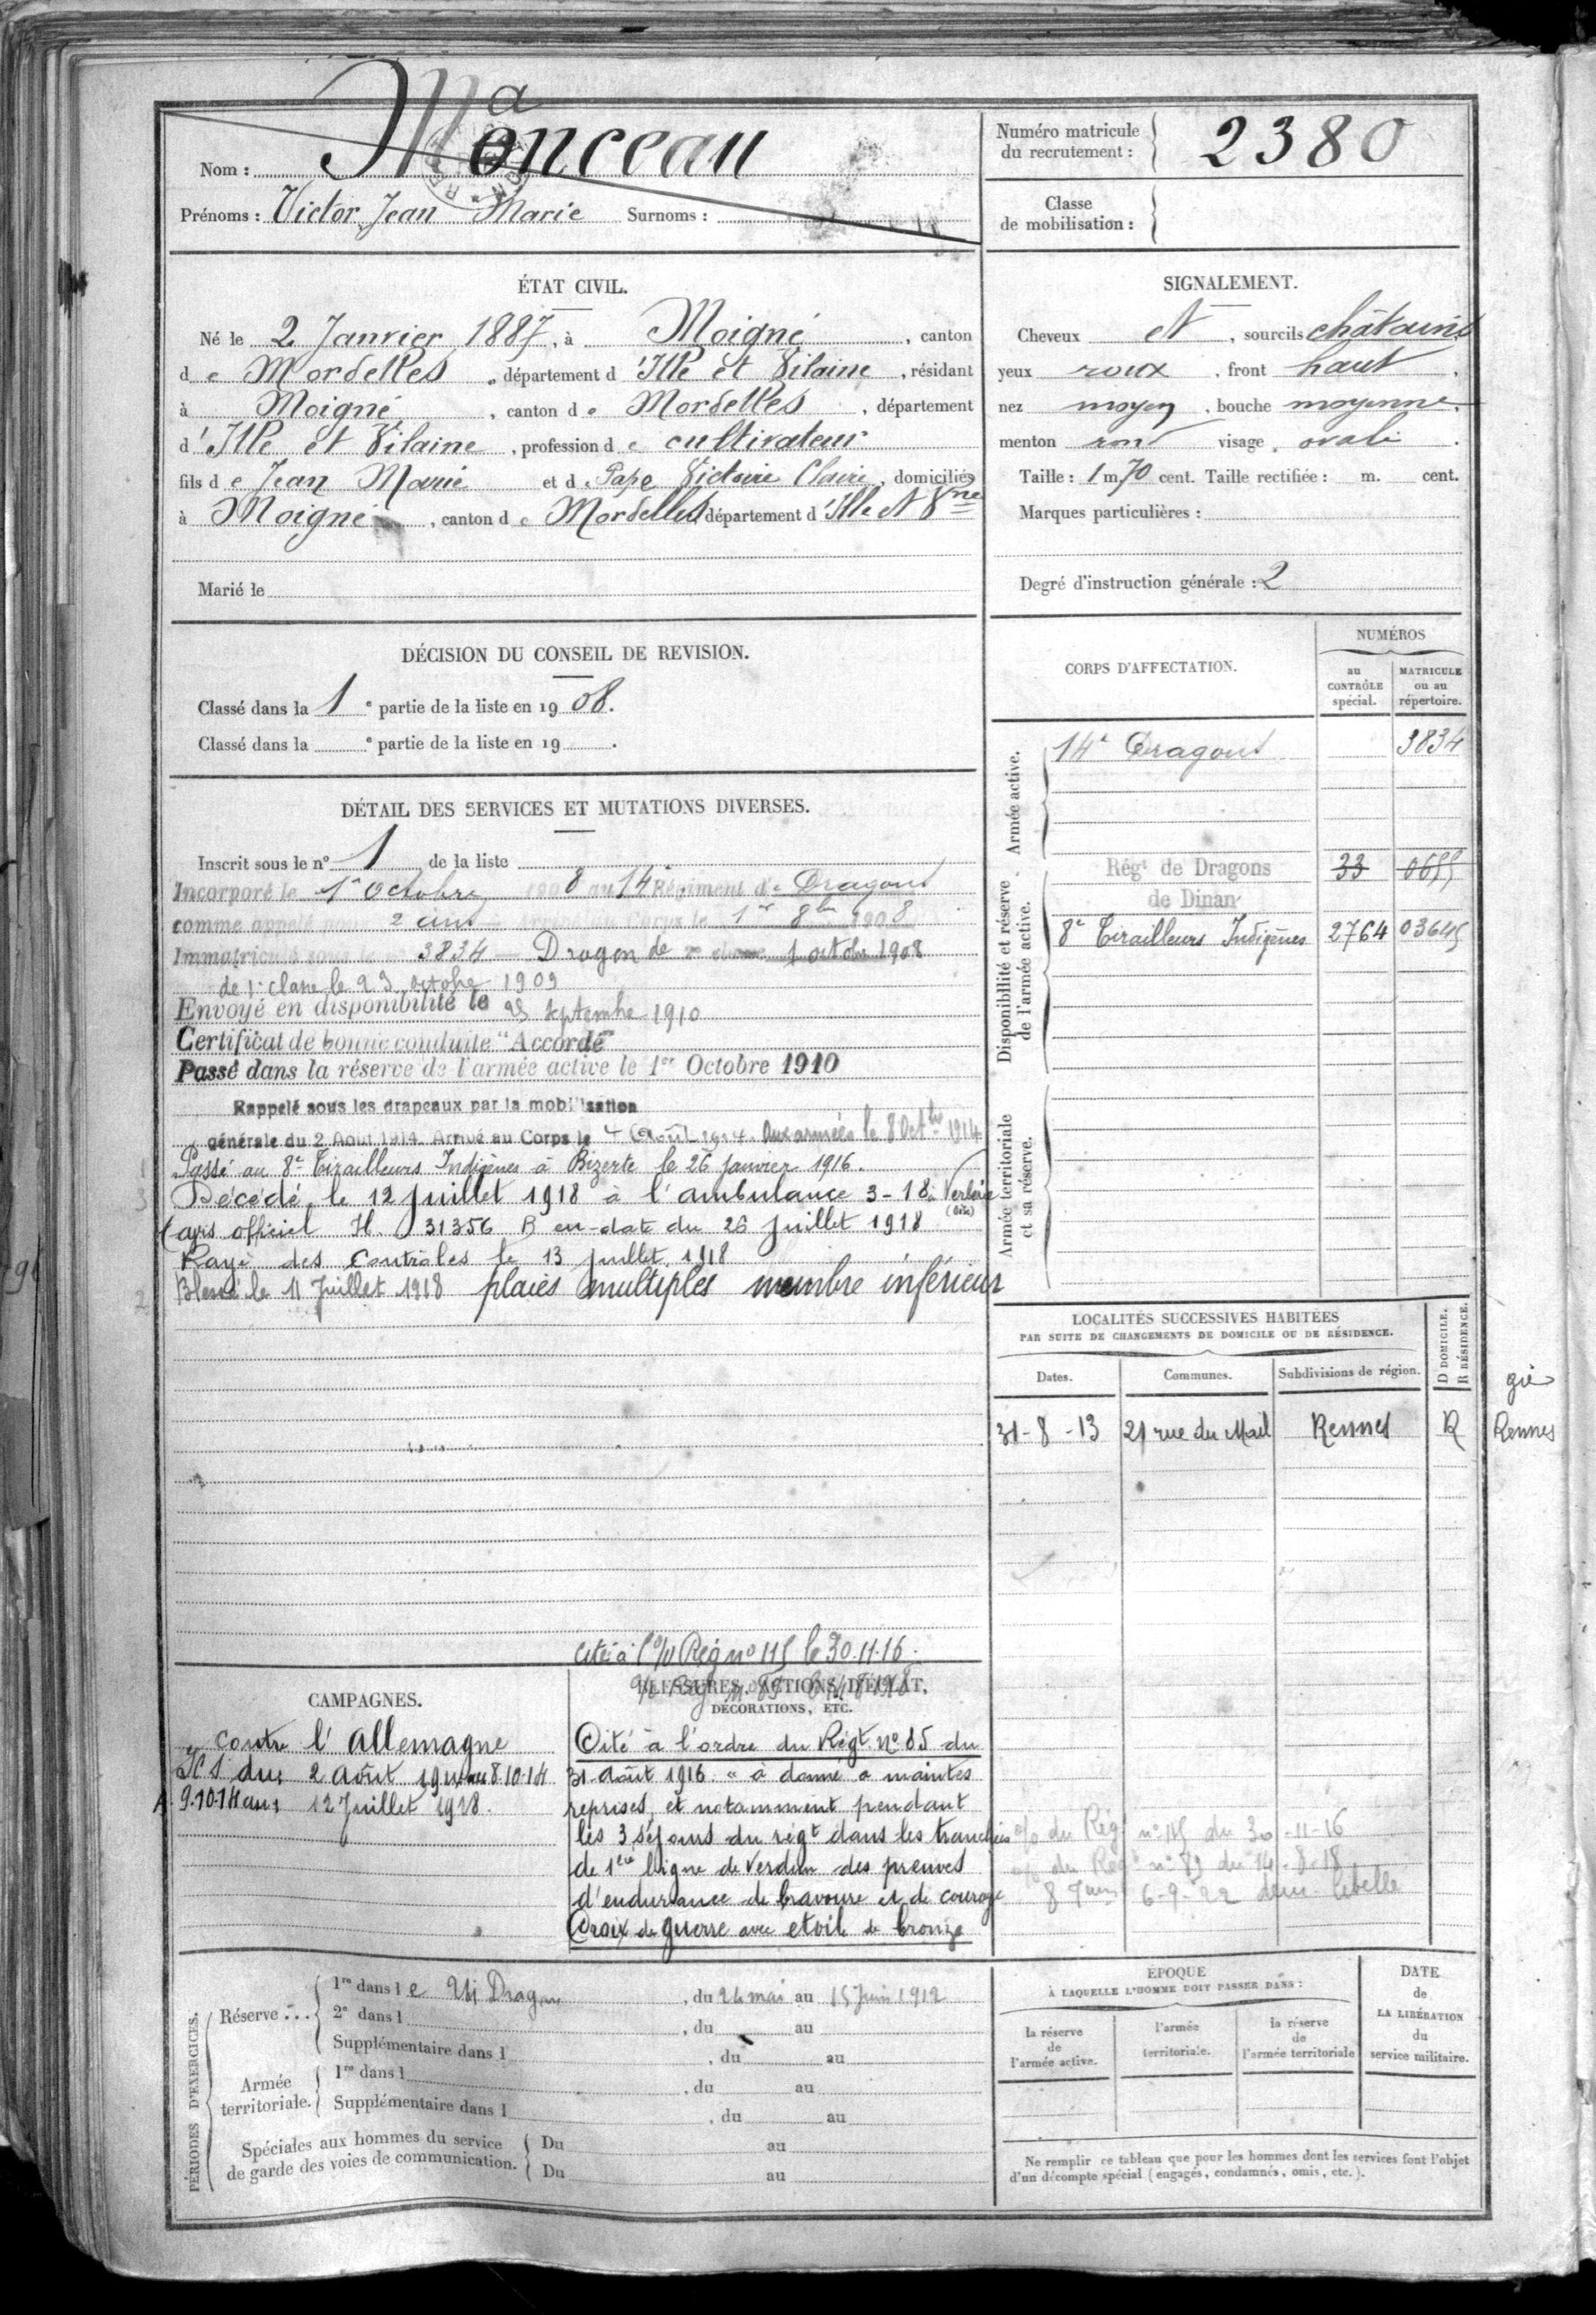 Nom : Monceau
a
Prénoms : Victor Jean Marie Surnoms :
Numéro matricule du recrutement : 2380
Classe de mobilisation :
ÉTAT CIVIL.
Né le 2 Janvier 1887, à Moigné, canton
de Mordelles, département d'Ille et Vilaine, résidant
à Moigné, canton de Mordelles, département
d'Ille et Vilaine, profession de cultivateur
fils de Jean Marie et de Pape Victoire Claire, domiciliés
à Moigné, canton de Mordelles département d'Ille et Vne
Marié le
SIGNALEMENT.
Cheveux et, sourcils châtains
yeux roux, front haut,
nez moyen, bouche moyenne,
menton rond visage ovale.
Taille : 1 m 70 cent. Taille rectifiée : m. cent.
Marques particulières :
Degré d'instruction générale : 2
DÉCISION DU CONSEIL DE REVISION.
Classé dans la 1e partie de la liste en 1908.
Classé dans la e partie de la liste en 19 .
DÉTAIL DES SERVICES ET MUTATIONS DIVERSES.
Inscrit sous le n° 1 de la liste
Incorporé le 1er Octobre 1908 au 14 Régiment de Dragons
comme appelé pour 2 ans Arrivé au Corps le 1er 8bre 1908
Immatriculé sous le n° 3834 Dragon de 2e classe 1 octobre 1908
de 1e classe le 23 octobre 1909
Envoyé en disponibilité le 25 septembre 1910
Certificat de bonne conduite "Accordé"
Passé dans la réserve de l'armée active le 1er Octobre 1910
Rappelé sous les drapeaux par la mobilisation
générale du 2 Août 1914. Arrivé au Corps le 4 Août 1914. Aux armées le 8 Octbre 1914
1 Passé au 8e Tirailleurs Indigènes à Bizerte le 26 janvier 1916.
3 Décédé le 12 juillet 1918 à l'ambulance 3-18 à Verberie
(Oise)
(avis officiel H. 31356 B en date du 26 juillet 1918
Rayé des contrôles le 13 juillet 1918
2 Blessé le 11 Juillet 1918 plaies multiples membre inférieur
CORPS D'AFFECTATION.
NUMÉROS
au CONTRÔLE spécial.
MATRICULE ou au répertoire.
Armée active.
14e Dragons 3834
Disponibilité et réserve de l'armée active.
Régt de Dragons 33 0655
de Dinan
8e Tirailleurs Indigènes 2764 03645
Armée territoriale et sa réserve.
LOCALITÉS SUCCESSIVES HABITÉES
PAR SUITE DE CHANGEMENTS DE DOMICILE OU DE RÉSIDENCE.
Dates. Communes. Subdivisions de région. D DOMICILE. R RÉSIDENCE.
31-8-13 21 rue du Mail Rennes R
Rennes
Cité à l'o/ Rég no 115 le 30.11.16.
CAMPAGNES.
contre l'allemagne
du 2 août 1914 au 8.10.14
A. 9.10.14 au 12 Juillet 1918.
BLESSURES, ACTIONS D'ÉCLAT,
DÉCORATIONS, ETC.
Cité à l'ordre du Régt n° 85 du
31 août 1916 "a donné a maintes
reprises, et notamment pendant
les 3 séjours du régt dans les tranchées
de 1ère ligne de Verdun des preuves
d'endurance de bravoure et de courage
Croix de guerre avec etoile de bronze
o/o du Rég n° 115 du 30-11-16
o/o du Rég n° 89 du 14-8-18
6-9-22
PÉRIODES D'EXERCICES.
Réserve : 1re dans le Dragons, du 24 mai au 15 juin 1912
2e dans l , du au
Supplémentaire dans l , du au
Armée territoriale. 1re dans l , du au
Supplémentaire dans l , du au
Spéciales aux hommes du service de garde des voies de communication. Du au
Du au
ÉPOQUE
À LAQUELLE L'HOMME DOIT PASSER DANS :
la réserve de l'armée active.
l'armée territoriale.
la réserve de l'armée territoriale
DATE de LA LIBÉRATION du service militaire.
Ne remplir ce tableau que pour les hommes dont les services font l'objet
d'un décompte spécial (engagés, condamnés, omis, etc.).